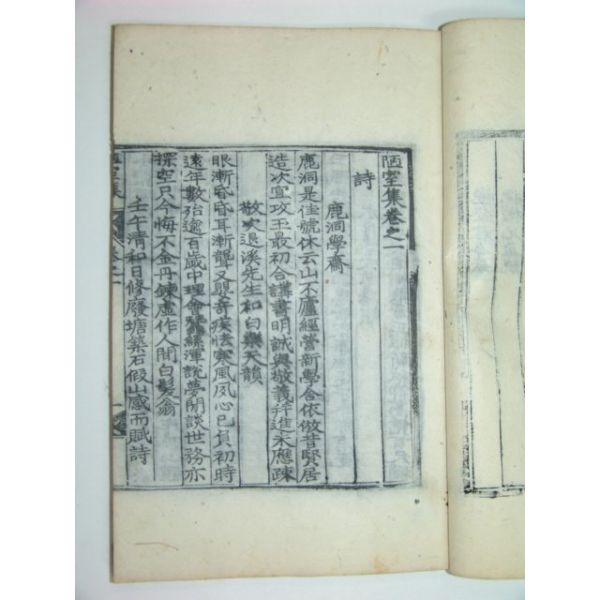 陋室集卷之一
詩
鹿洞學齋
鹿洞是佳號休云山不廬經營新學舍依倣昔賢居
造次宜攻玉最初合講書明誠與敬義拜進未應疎
敬次退溪先生和白樂天韻
眼漸昏昏耳漸聾又與奇疾怯寒風夙心已負初時
遠年數殆逾百歲中理會蠶絲渾說夢閒談世務亦
探空只今悔不金丹鍊虛作人間白髮翁
壬午清和日修廢塘築石假山感而賦詩
陋室集 卷之一 一